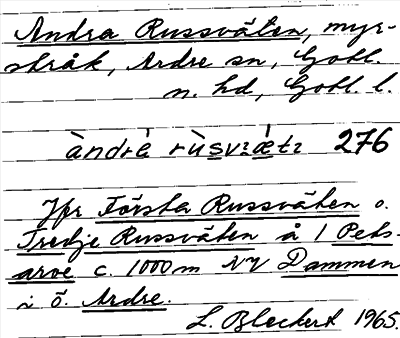 Andra Russväten, myr-
stråk, Ardre sn, Gotl.
n. hd, Gotl. l.
àndrá rùsvǽtɩ 276
Jfr Första Russväten o.
Tredje Russväten å 1 Pets-
arve c. 1000 m NV Dammen
i ö. Ardre.
L. Bleckert 1965.